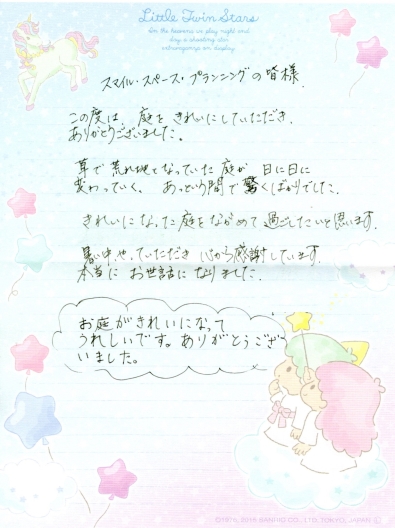 Little Twin Stars
In the heavens we play night and
day, a shooting star
extravaganza on display.
スマイル・スペース・プランニングの皆様
この度は、庭をきれいにしていただき、
ありがとうございました。
草で荒れ地となっていた庭が日に日に
変わっていく、あっという間で驚くばかりでした。
きれいになった庭をながめて過ごしたいと思います。
暑い中やっていただき心から感謝しています。
本当にお世話になりました。
お庭がきれいになって
うれしいです。ありがとうござ
いました。
SANRIO CO., LTD. TOKYO, JAPAN